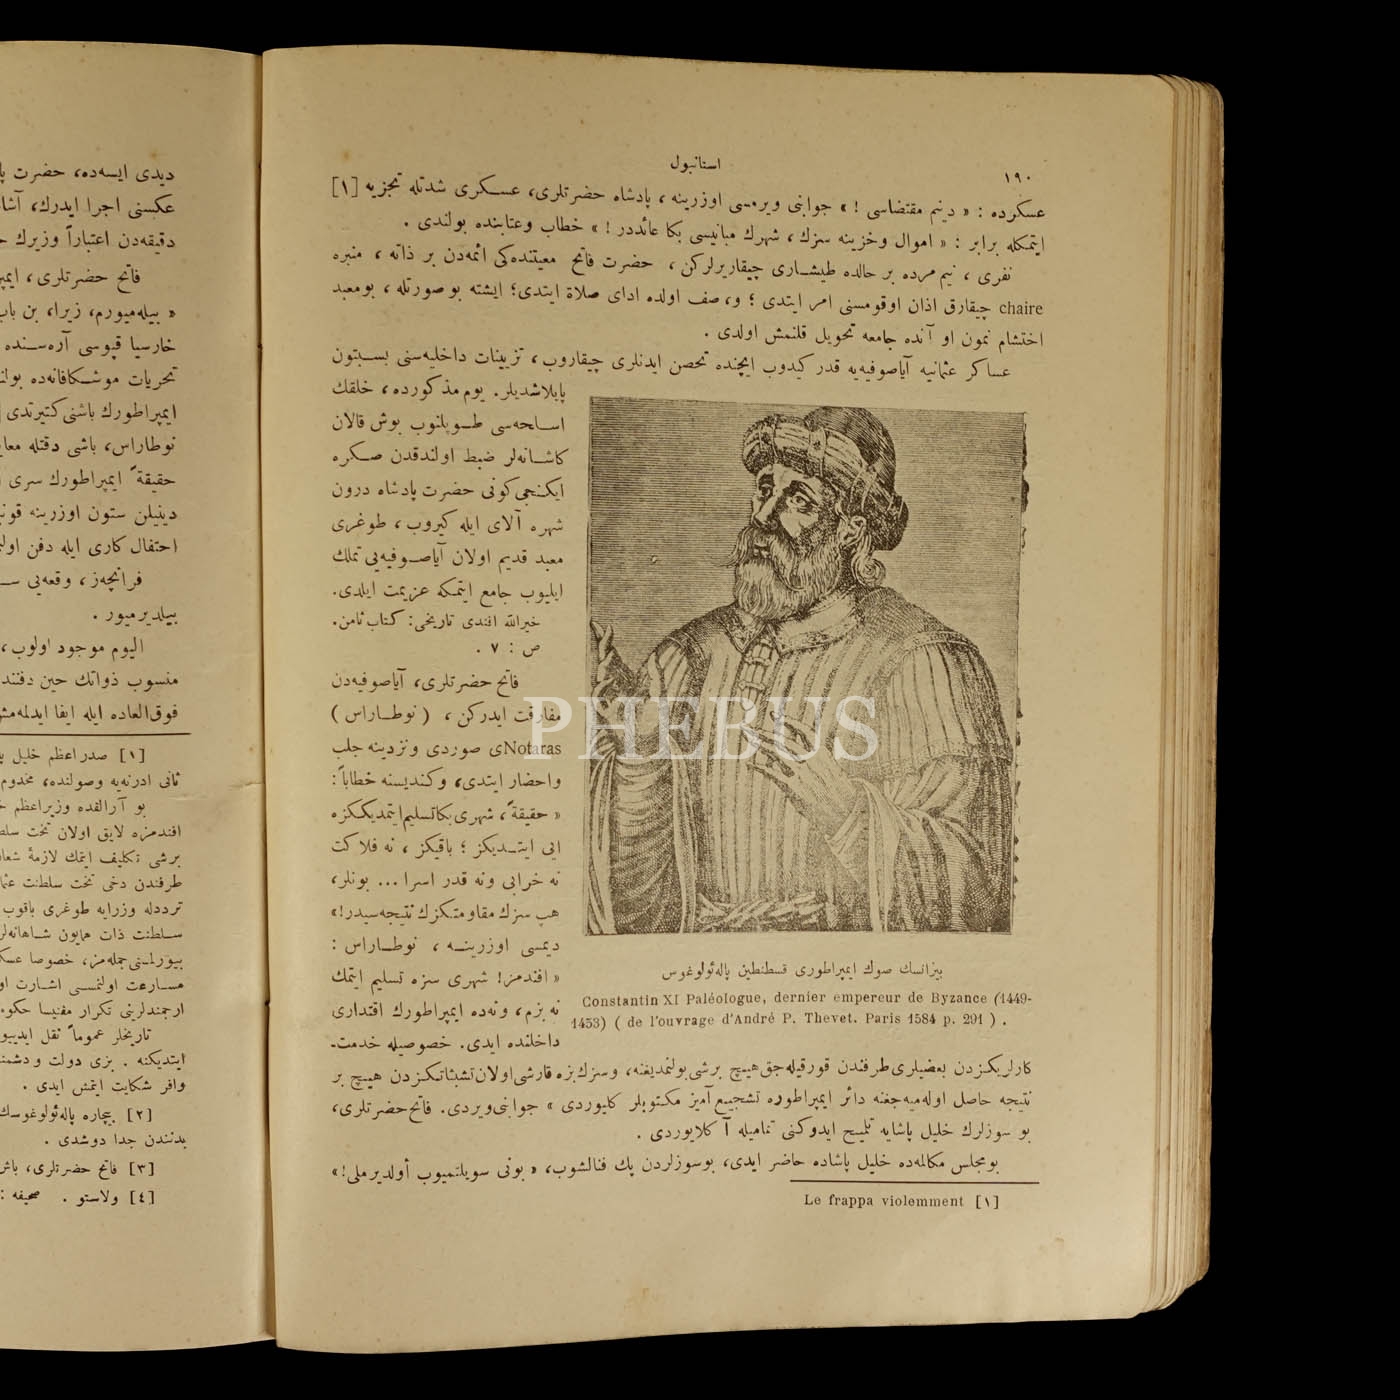 استانبول
١٩٠
عسكرده : « دينم مقتضاسى ! » جوابنى ويرمسى اوزرينه ، پادشاه حضرتلرى، عسكرى شدتله تجزيه [١]
ايتمكله برابر : « اموال وخزينه سزك ، شهرك مبانيسى بكا عائددر ! » خطاب وعتابنده بولندى .
نفرى ، نيم مرده بر حالده طيشارى چيقاريرلركن ، حضرت فاتح معيتنده‌كى ائمه‌دن بر ذاته ، منبره
chaire چيقارق اذان اوقومسنى امر ايتدى ؛ و، صف اولده اداى صلاة ايتدى؛ ايشته بو صورتله ، بومعبد
احتشام نمون او آنده جامعه تحويل قلنمش اولدى .
عساكر عثمانيه آياصوفيه‌يه قدر كيدوب ايچنده تحصن ايدنلرى چيقاروب، تزيينات داخليه‌سنى بسبتون
پايلاشديلر. يوم مذكورده ، خلقك
اسلحه‌سى طوپلنوب بوش قالان
كاشانه‌لر ضبط اولندقدن صكره
ايكنجى كونى حضرت پادشاه درون
شهره آلاى ايله كيروب ، طوغرى
معبد قديم اولان آياصوفيه‌يى تملك
ايليوب جامع ايتمكه عزيمت ايلدى.
خيرالله افندى تاريخى: كتاب ثامن.
ص : ٧ .
فاتح حضرتلرى، آياصوفيه‌دن
مفارقت ايدركن ، ( نوطاراس )
Notarasى صوردى ونزدينه جلب
واحضار ايتدى، وكنديسنه خطاباً :
« حقيقةً ، شهرى بكاتسليم ايتمديككزه
ايى ايتديكز ؛ باقيكز ، نه فلاكت
نه خرابى ونه قدر اسرا ... بونلر،
هپ سزك مقاومتكزك نتيجه‌سيدر!»
ديمسى اوزرينه ، نوطاراس :
« افندمز! شهرى سزه تسليم ايتمك
نه بزم ، ونه‌ده ايمپراطورك اقتدارى
داخلنده ايدى. خصوصيله خدمت‌ـ
بيزانسك صوك ايمپراطورى قسطنطين پاله‌ئولوغوس
Constantin XI Paléologue, dernier empereur de Byzance (1449-
1453) ( de l'ouvrage d'André P. Thevet. Paris 1584 p. 291 ) .
كارلريكزدن بعضيلرى طرفندن قورقيله‌جق هيچ برشى بولنمديغنه، وسزك بزه قارشى اولان تشبثاتكزدن هيچ بر
نتيجه حاصل اوله‌ميه‌جغنه دائر ايمپراطوره تشجيع آميز مكتوبلر كليوردى » جوابنى ويردى. فاتح حضرتلرى،
بو سوزلرك خليل پاشايه تلميح ايدوكنى تماميله آكلايوردى .
بومجلس مكالمه‌ده خليل پاشاده حاضر ايدى، بوسوزلردن پك فنالشوب، « بونى سويلتميوب أولديرملى!»
Le frappa violemment [١]
ديدى ايسه‌ده، حضرت
عكسنى اجرا ايدرك،
دقيقه‌دن اعتباراً وزيرك
فاتح حضرتلرى ،
« بيله‌ميورم، زيرا، بن
خارسيا قپوسى آره‌سنده
تحريات موشكافانه‌ده
ايمپراطورك باشنى كتيرتدى
نوطاراس، باشى دقتله
حقيقةً ايمپراطورك سرى
دينيلن ستون اوزرينه
احتفال كارى ايله دفن
فرانچه‌ز ، وقعه‌يى
بيلديرميور .
اليوم موجود اولوب،
منسوب ذواتك حين
فوق‌العاده ايله ايفا
[١] صدراعظم خليل
ثانى ادرنه‌يه وصولنده، مخدوم
بو آرالقده وزيراعظم
افندمزه لايق اولان تخت
برشى تكليف ايتمك لازمهٔ
طرفندن دخى تخت سلطنت
ترددله وزرايه طوغرى باقوب
سلطنت ذات همايون شاهانه‌لر
بيورلمسنى جمله‌مز، خصوصا
مسارعت اولنمسى اشارت
ارجمندلرينى تكرار مغنيسا
تاريخلر عموماً نقل
ايتديكنه . بزى دولت
وافر شكايت ايتمش ايدى .
[٢] بيچاره پاله‌ئولوغوسك
بدنندن جدا دوشدى .
[٣] فاتح حضرتلرى،
[٤] ولاستو . صحيفه :
PHEBUS